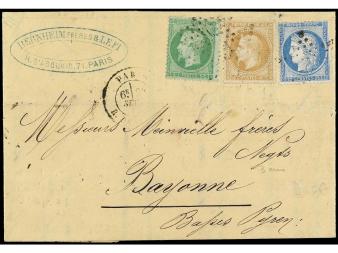 BERNHEIM FRÈRES & LEPI
R. D'ABOUKIR, 71. PARIS
PAR
6E
Messieurs Mainvielle frères
Negts
Bayonne
Basses Pyren.